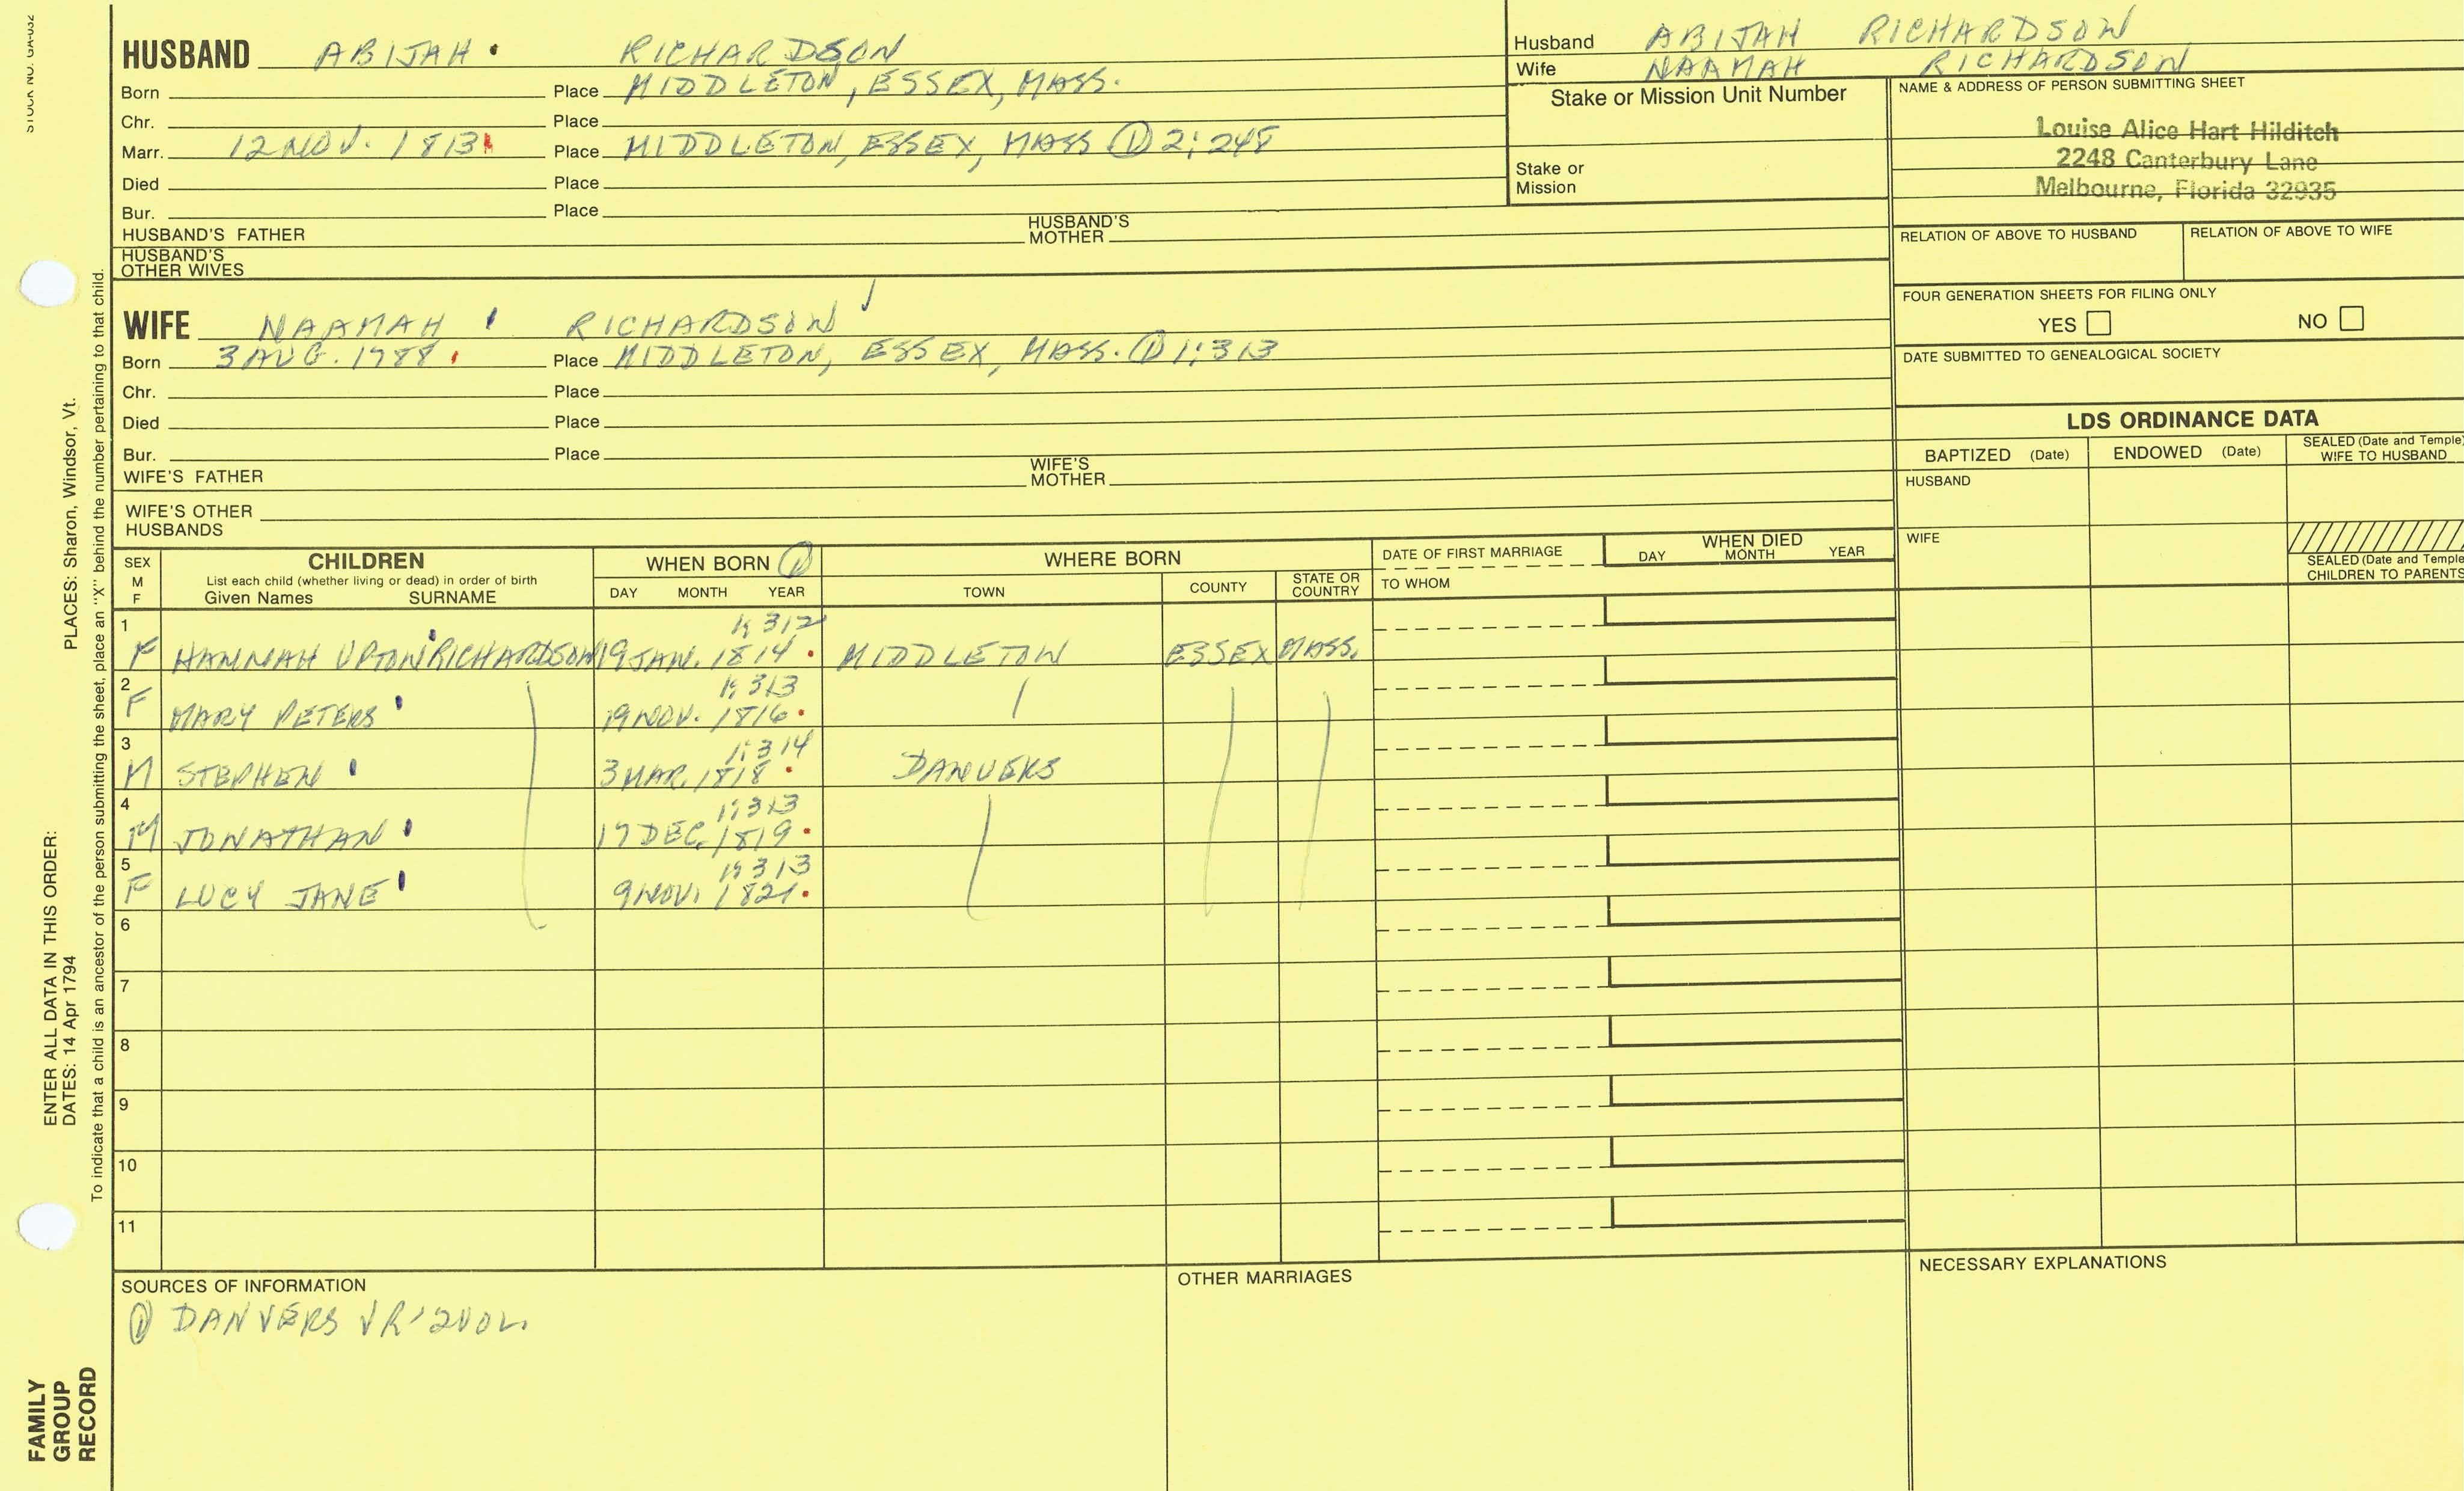 STOCK NO. GA-032
HUSBAND ABIJAH RICHARDSON
Born Place MIDDLETON, ESSEX, MASS.
Chr. Place
Marr. 12 NOV. 1813 Place MIDDLETON, ESSEX, MASS ① 2:248
Died Place
Bur. Place
HUSBAND'S FATHER HUSBAND'S MOTHER
HUSBAND'S OTHER WIVES
Husband ABIJAH RICHARDSON
Wife NAAMAH RICHARDSON
Stake or Mission Unit Number
Stake or Mission
NAME & ADDRESS OF PERSON SUBMITTING SHEET
Louise Alice Hart Hilditch
2248 Canterbury Lane
Melbourne, Florida 32935
RELATION OF ABOVE TO HUSBAND RELATION OF ABOVE TO WIFE
FOUR GENERATION SHEETS FOR FILING ONLY
YES NO
DATE SUBMITTED TO GENEALOGICAL SOCIETY
WIFE NAAMAH RICHARDSON
Born 3 AUG. 1788 Place MIDDLETON, ESSEX, MASS. ① 1:313
Chr. Place
Died Place
Bur. Place
WIFE'S FATHER WIFE'S MOTHER
WIFE'S OTHER HUSBANDS
LDS ORDINANCE DATA
BAPTIZED (Date) ENDOWED (Date) SEALED (Date and Temple) WIFE TO HUSBAND
HUSBAND
WIFE
SEALED (Date and Temple) CHILDREN TO PARENTS
SEX M F
CHILDREN
List each child (whether living or dead) in order of birth
Given Names SURNAME
WHEN BORN ①
DAY MONTH YEAR
WHERE BORN
TOWN COUNTY STATE OR COUNTRY
DATE OF FIRST MARRIAGE
TO WHOM
WHEN DIED
DAY MONTH YEAR
1 1:312
F HANNAH UPTON RICHARDSON 19 JAN. 1814 MIDDLETON ESSEX MASS.
2 1:313
F MARY PETERS 19 NOV. 1816
3 1:314
M STEPHEN 3 MAR. 1818 DANVERS
4 1:313
M JONATHAN 17 DEC. 1819
5 1:313
F LUCY JANE 9 NOV. 1821
6
7
8
9
10
11
SOURCES OF INFORMATION
① DANVERS VR
OTHER MARRIAGES
NECESSARY EXPLANATIONS
FAMILY GROUP RECORD
ENTER ALL DATA IN THIS ORDER:
DATES: 14 Apr 1794 PLACES: Sharon, Windsor, Vt.
To indicate that a child is an ancestor of the person submitting the sheet, place an "X" behind the number pertaining to that child.